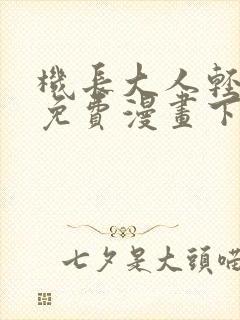 機長大人輕
免費漫畫下
七夕是大頭喵